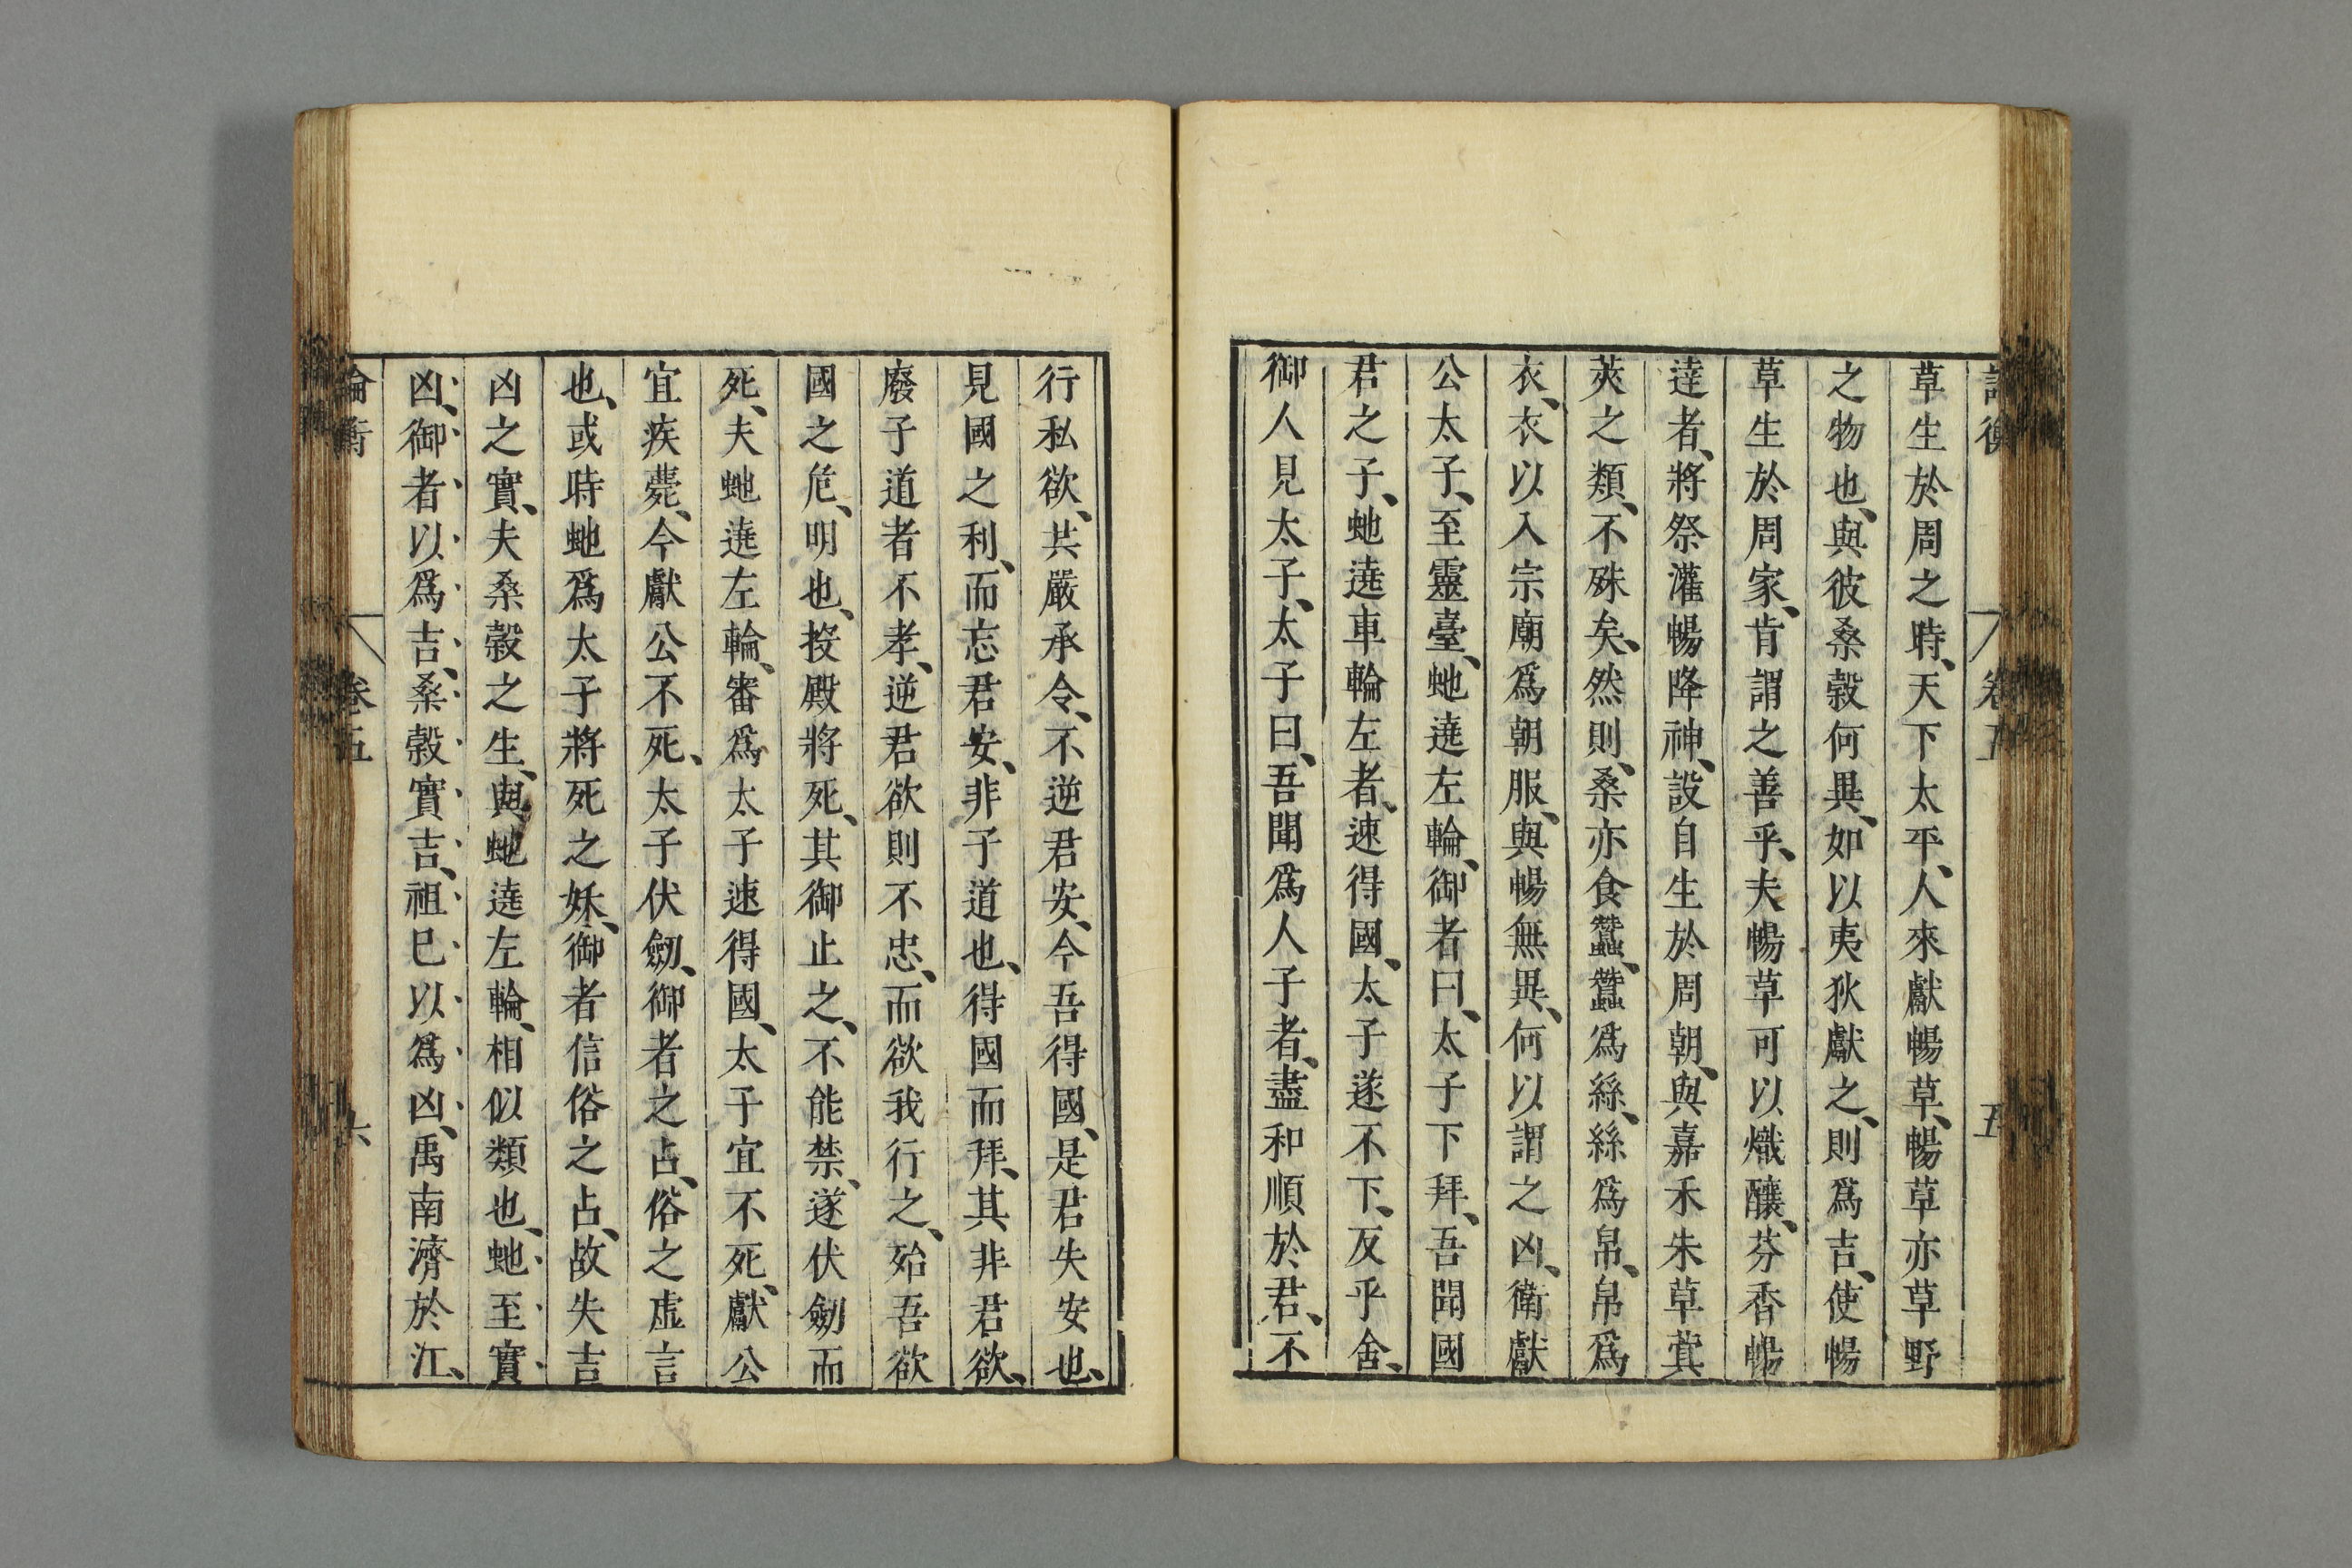 草生於周之時、天下太平、人來獻暢草、暢草亦草野
之物也、與彼桑榖何異、如以夷狄獻之、則爲吉、使暢
草生於周家、肯謂之善乎、夫暢草可以熾釀、芬香暢
達者、將祭灌暢降神、設自生於周朝、與嘉禾朱草蓂
莢之類、不殊矣、然則、桑亦食蠶、蠶爲絲、絲爲帛、帛爲
衣、衣以入宗廟爲朝服、與暢無異、何以謂之凶、衛獻
公太子、至靈臺、虵遶左輪、御者曰、太子下拜、吾聞國
君之子、虵遶車輪左者、速得國、太子遂不下、反乎舍、
御人見太子、太子曰、吾聞爲人子者、盡和順於君、不
行私欲、共嚴承令、不逆君安、今吾得國、是君失安也、
見國之利、而忘君安、非子道也、得國而拜、其非君欲、
廢子道者不孝、逆君欲則不忠、而欲我行之、殆吾欲
國之危、明也、投殿將死、其御止之、不能禁、遂伏劒而
死、夫虵遶左輪、審爲太子速得國、太子宜不死、獻公
宜疾薨、今獻公不死、太子伏劒、御者之占、俗之虛言
也、或時虵爲太子將死之妖、御者信俗之占、故失吉
凶之實、夫桑榖之生、與虵遶左輪、相似類也、虵至實
凶、御者以爲吉、桑榖實吉、祖巳以爲凶、禹南濟於江、
論衡 卷五 六
卷五 五